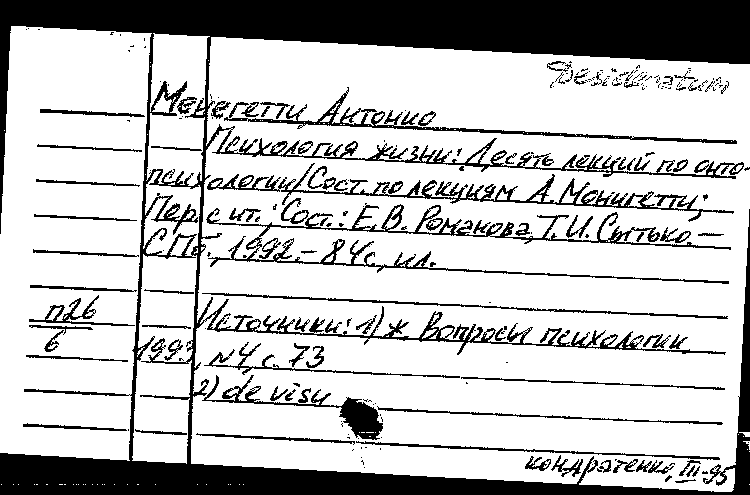 Desideratum
Менегетти, Антонио
Психология жизни: Десять лекций по онто-
психологии/Сост. по лекциям А. Монигетти;
Пер. с ит.; Сост.: Е.В. Романова, Т.И. Сытько. –
СПб., 1992. – 84с., ил.
п26
6
Источники: 1) ж. Вопросы психологии,
1993, №4, с. 73
2) de visu
Кондратенко, III-95